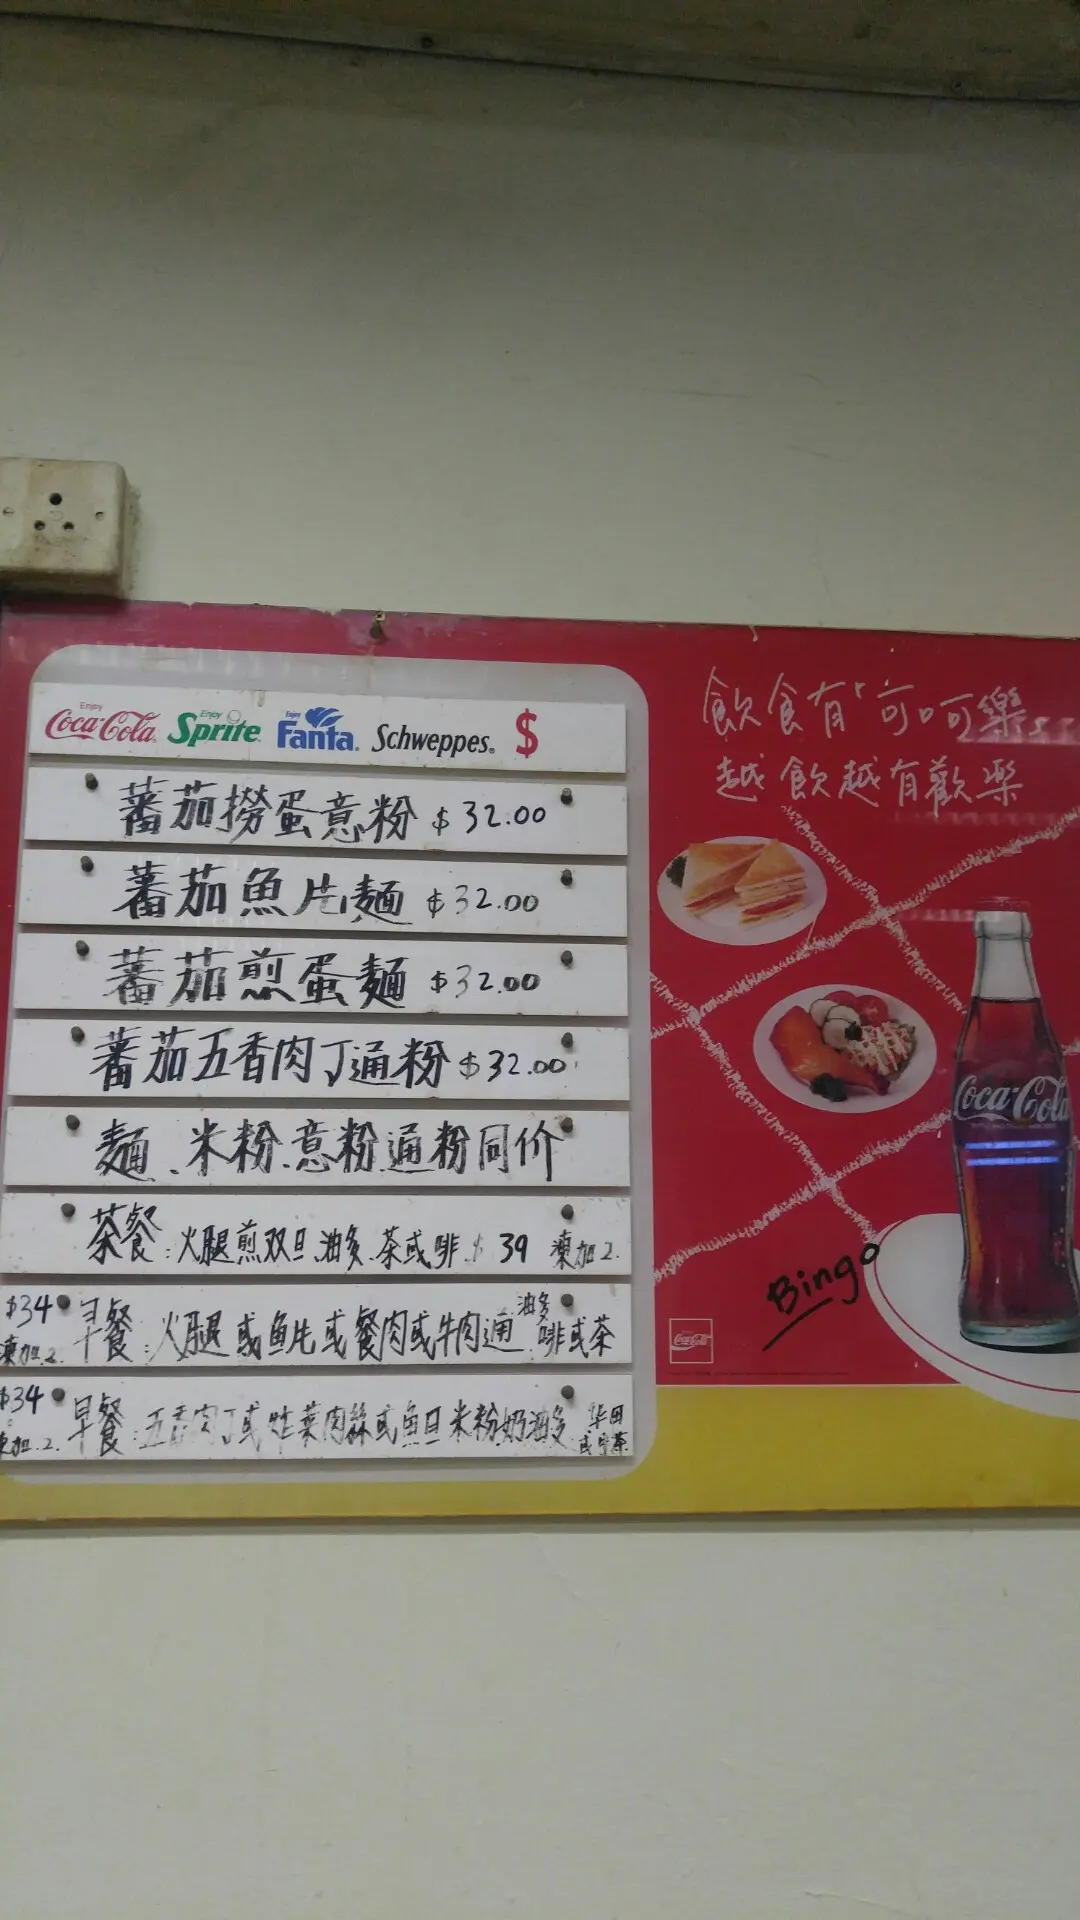 Enjoy Coca-Cola Enjoy Sprite Enjoy Fanta Schweppes $
蕃茄撈蛋意粉 $32.00
蕃茄魚片麵 $32.00
蕃茄煎蛋麵 $32.00
蕃茄五香肉丁通粉 $32.00
麵、米粉、意粉通粉同价
茶餐:火腿煎双旦油多.茶或啡 $39 凍加2.
$34 凍加.2. 早餐:火腿或魚片或餐肉或牛肉通 油多 啡或茶
$34 凍加.2. 早餐:五香肉丁或 菜肉絲或魚旦米粉奶油多
飲食有"可口可樂"
越飲越有歡樂
Coca-Cola
Bingo
Coca-Cola